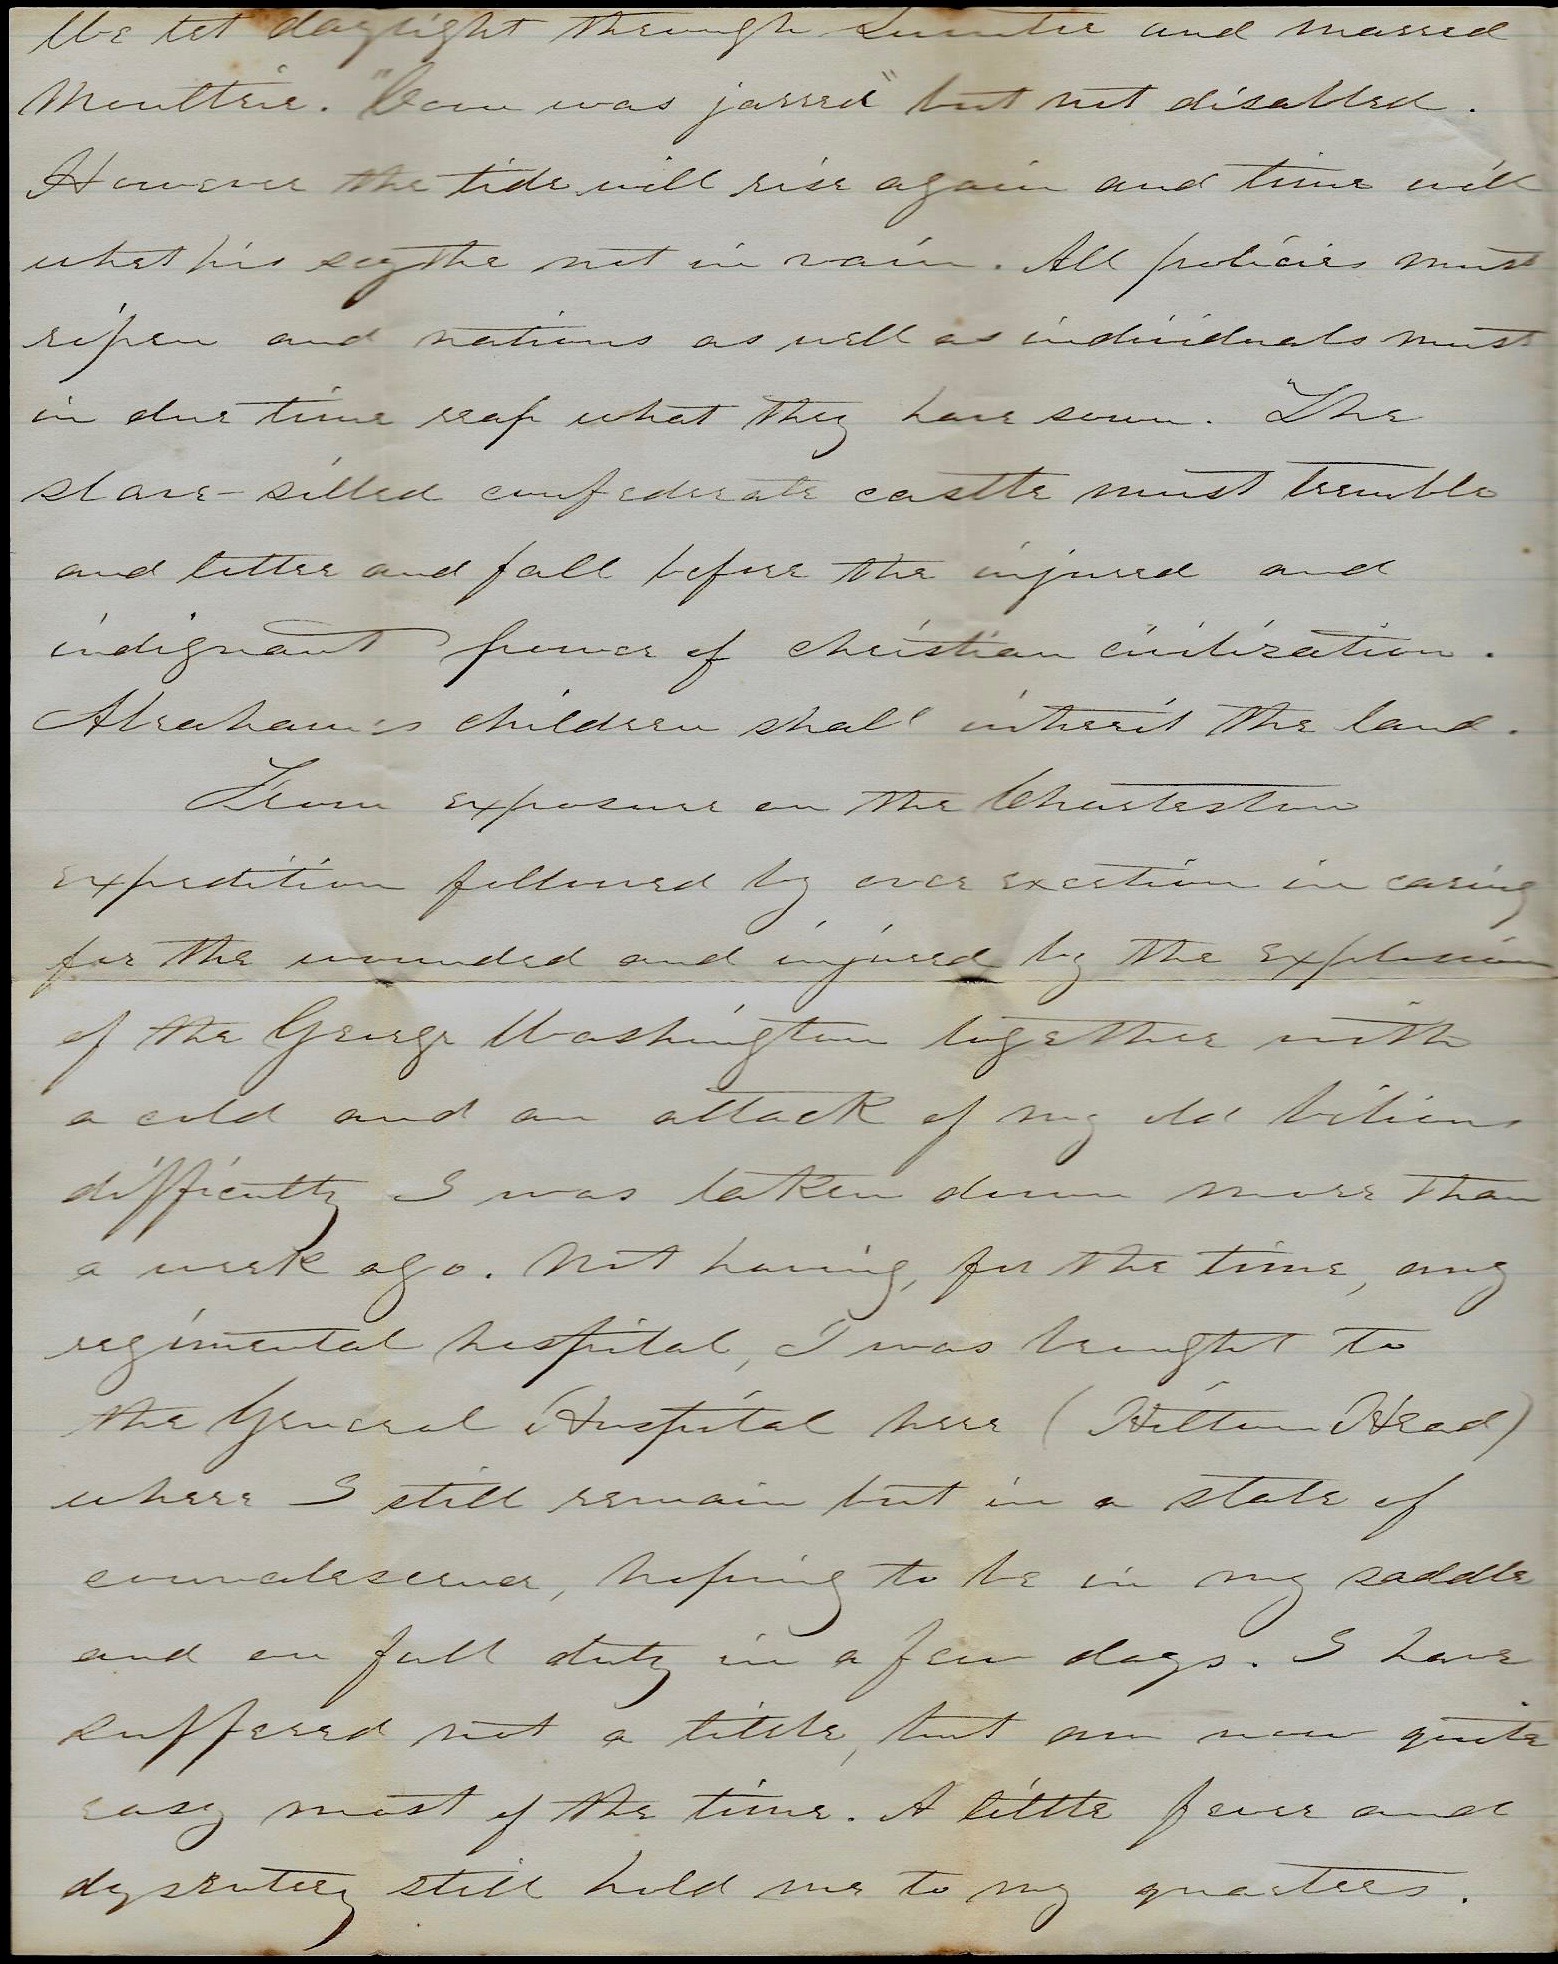 We let daylight through Sumter and marred
Moultrie. "Coon was jarred" but not disabled.
However the tide will rise again and time will
whet his scythe not in vain. All policies must
ripen and nations as well as individuals must
in due time reap what they have sown. The
slave-silled confederate castle must tremble
and totter and fall before the injured and
indignant power of christian civilization.
Abraham's children shall inherit the land.
From exposure on the Charleston
expedition followed by over exertion in caring
for the wounded and injured by the explosion
of the George Washington together with
a cold and an attack of my old bilious
difficulty I was taken down more than
a week ago. Not having, for the time, any
regimental hospital, I was brought to
the General Hospital here (Hilton Head)
where I still remain but in a state of
convalescence, hoping to be in my saddle
and on full duty in a few days. I have
suffered not a little, but am now quite
easy most of the time. A little fever and
dysentery still hold me to my quarters.